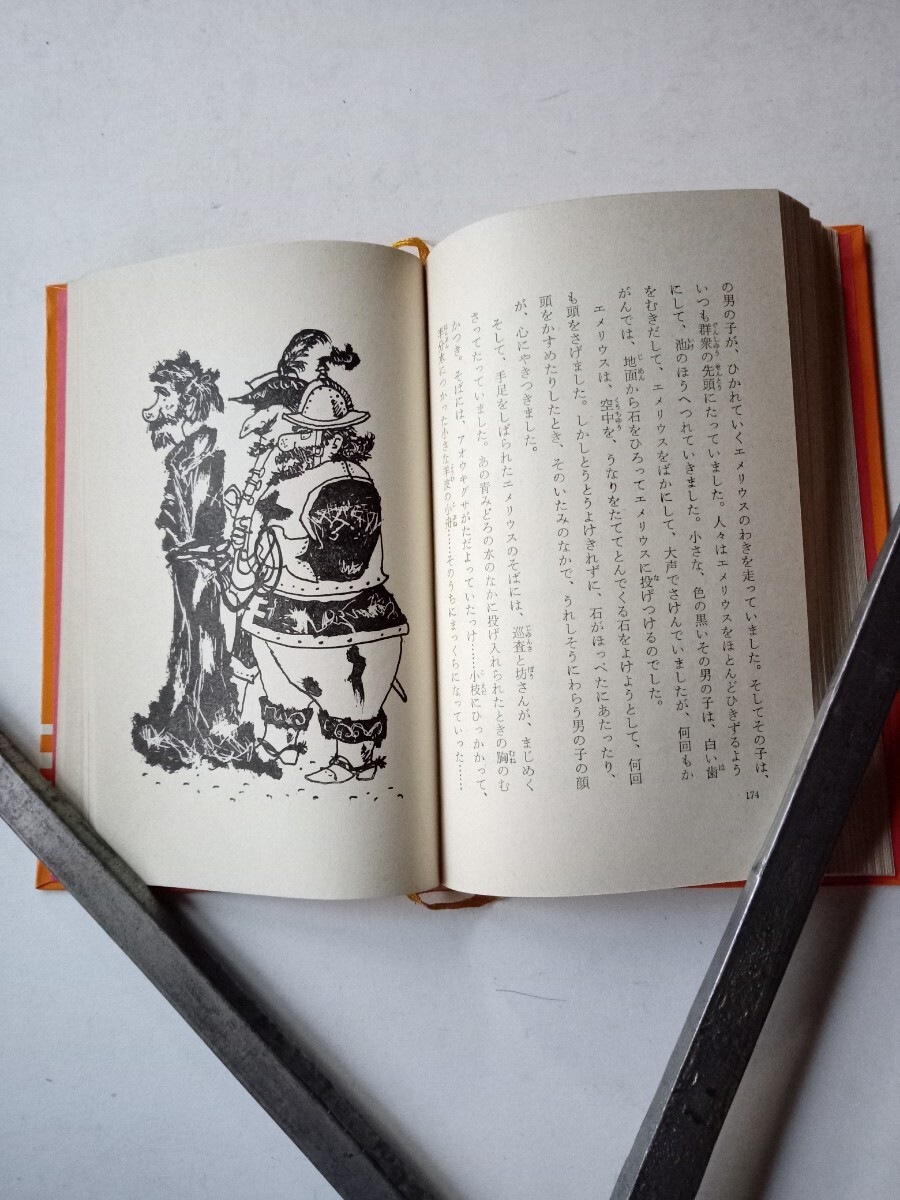 の男の子が、ひかれていくエメリウスのわきを走っていました。そしてその子は、
いつも群衆の先頭にたっていました。人々はエメリウスをほとんどひきずるよう
にして、池のほうへつれていきました。小さな、色の黒いその男の子は、白い歯
をむきだして、エメリウスをばかにして、大声でさけんでいましたが、何回もか
がんでは、地面から石をひろってエメリウスに投げつけるのでした。
エメリウスは、空中を、うなりをたててとんでくる石をよけようとして、何回
も頭をさげました。しかしとうとうよけきれずに、石がほっぺたにあたったり、
頭をかすめたりしたとき、そのいたみのなかで、うれしそうにわらう男の子の顔
が、心にやきつきました。
そして、手足をしばられたエメリウスのそばには、巡査と坊さんが、まじめく
さってたっていました。あの青みどろの水のなかに投げ入れられたときの胸のむ
かつき。そばには、アオウキグサがただよっていたっけ……小枝にひっかかって、
水につかった小さな羊皮の小舟……そのうちにまっくらになっていった……
174